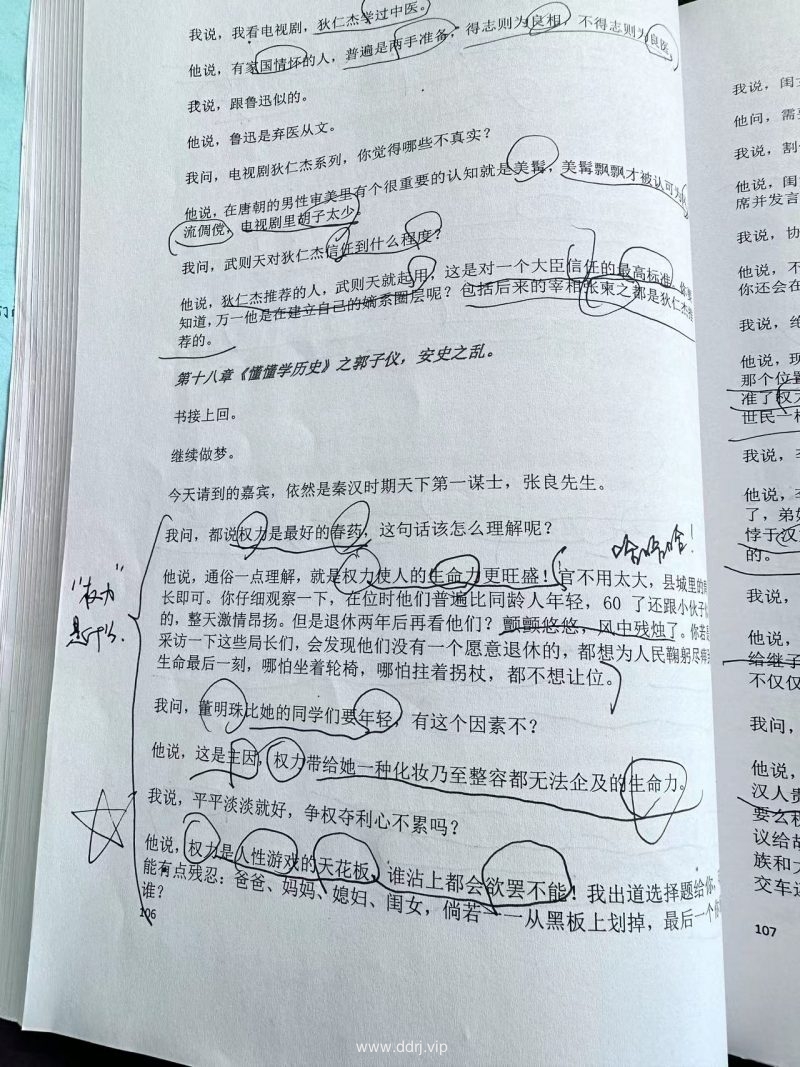 我说，我看电视剧，狄仁杰学过中医。
他说，有家国情怀的人，普遍是两手准备，得志则为良相，不得志则为良医。
我说，跟鲁迅似的。
他说，鲁迅是弃医从文。
我问，电视剧狄仁杰系列，你觉得哪些不真实？
他说，在唐朝的男性审美里有个很重要的认知就是美髯，美髯飘飘才被认可为
流倜傥，电视剧里胡子太少。
我问，武则天对狄仁杰信任到什么程度？
他说，狄仁杰推荐的人，武则天就起用，这是对一个大臣信任的最高标准，
知道，万一他是在建立自己的嫡系圈层呢？包括后来的宰相张柬之都是狄仁杰
荐的。
第十八章《懂懂学历史》之郭子仪，安史之乱。
书接上回。
继续做梦。
今天请到的嘉宾，依然是秦汉时期天下第一谋士，张良先生。
我问，都说权力是最好的春药，这句话该怎么理解呢？
哈哈哈！
他说，通俗一点理解，就是权力使人的生命力更旺盛！官不用太大，县城里的
长即可。你仔细观察一下，在位时他们普遍比同龄人年轻，60 了还跟小伙子
的，整天激情昂扬。但是退休两年后再看他们？颤颤悠悠，风中残烛了。你若
采访一下这些局长们，会发现他们没有一个愿意退休的，都想为人民鞠躬尽瘁
生命最后一刻，哪怕坐着轮椅，哪怕拄着拐杖，都不想让位。
"权力"
是什么.
我问，董明珠比她的同学们要年轻，有这个因素不？
他说，这是主因，权力带给她一种化妆乃至整容都无法企及的生命力。
我说，平平淡淡就好，争权夺利心不累吗？
他说，权力是人性游戏的天花板，谁沾上都会欲罢不能！我出道选择题给你，
能有点残忍：爸爸、妈妈、媳妇、闺女，倘若一一从黑板上划掉，最后一个
谁？
106
我说，闺
他问，需
我说，割
他说，闺
席并发言
我说，协
他说，不
你还会在
我说，绝
他说，现
那个位置
准了权力
世民一样
我说，
他说，
了，弟
悖于汉
的。
我说，
他说，
给继子
不仅仅
我问，
他说，
汉人贵
要么和
议给
族和
交车
107
www.ddrj.vip